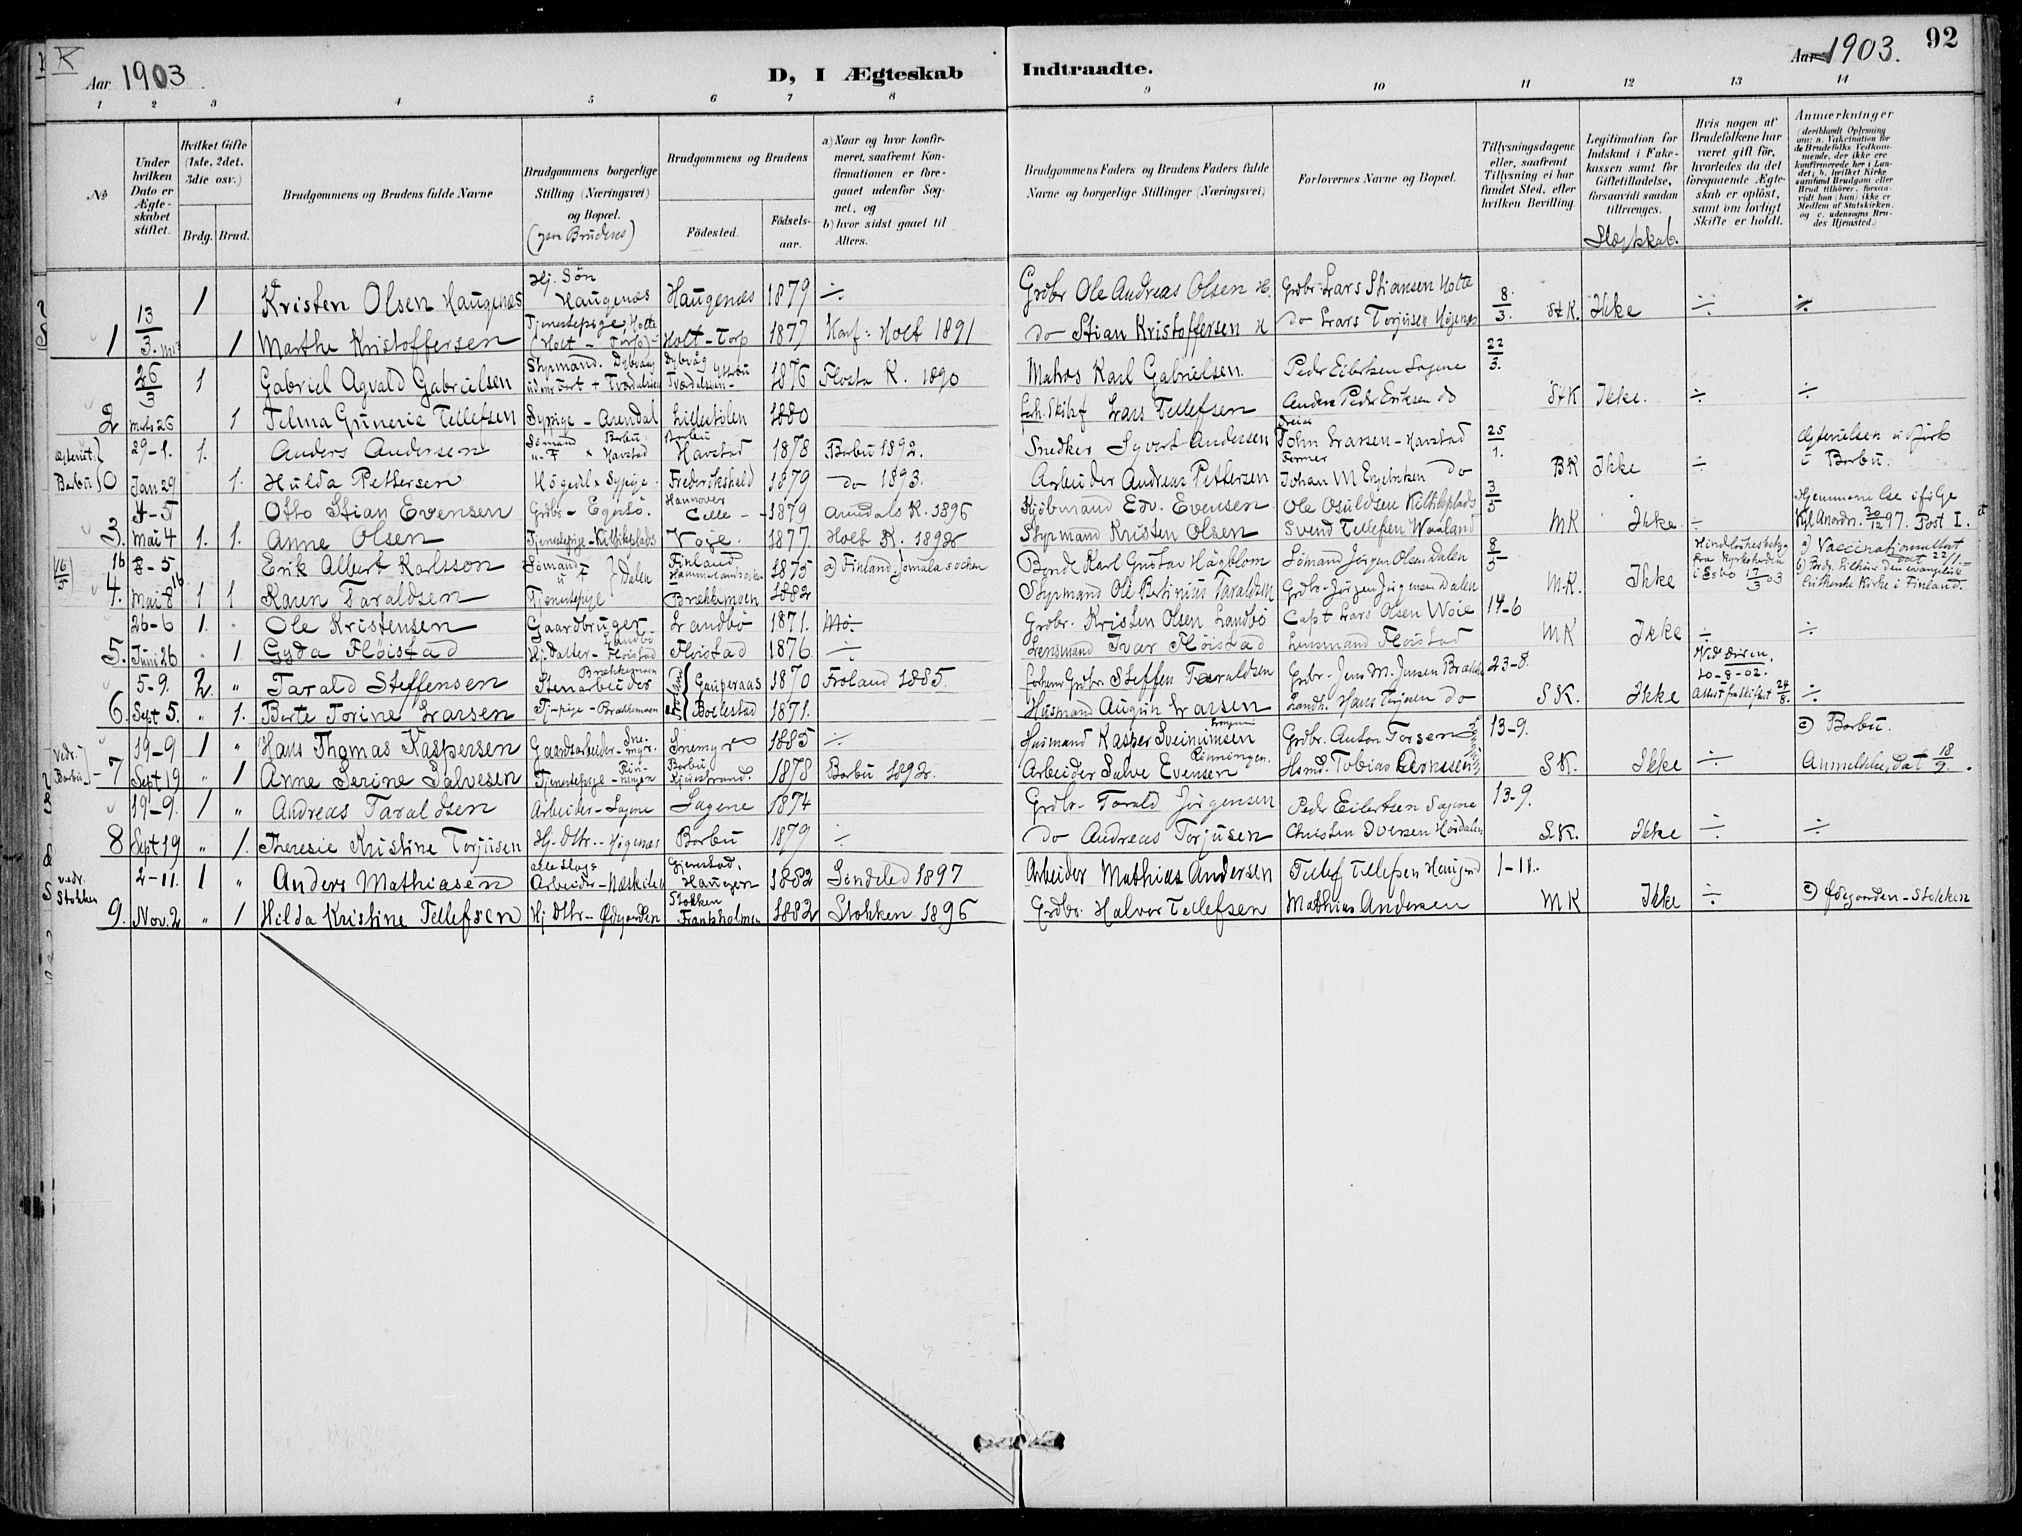 K
Aar 1903
D, I Ægteskab Indtraadte.
Aar 1903. 92
1 2 3 4 5 6 7 8 9 10 11 12 13 14
No
Under hvilken Dato er Ægteskabet stiftet.
Hvilket Gifte (1ste, 2det, 3die osv.)
Brdg. Brud.
Brudgommens og Brudens fulde Navne
Brudgommens borgerlige Stilling (Næringsvei) og Bopæl.
(samt Brudens)
Brudgommens og Brudens
Fødested. Fødselsaar.
a) Naar og hvor konfirmeret, saafremt Konfirmationen er foregaaet udenfor Sognet, og
b) hvor sidst gaaet til Alters.
Brudgommens Faders og Brudens Faders fulde Navne og borgerlige Stillinger (Næringsvei)
Forlovernes Navne og Bopæl.
Tillysningsdagene eller, saafremt Tillysning ei har fundet Sted, efter hvilken Bevilling.
Legitimation for Indskud i Enkekassen samt for Giftetilladelse, forsaavidt saadan tiltrænges.
Slægtskab.
Hvis nogen af Brudefolkene har været gift før, hvorledes da det foregaaende Ægteskab er opløst, samt om lovligt Skifte er holdt.
Anmærkninger
(deriblandt Oplysning om: a. Vakcination for de Brudefolks Vedkommende, der ikke ere konfirmerede her i Landet; b. hvilket Kirkesamfund Brudgom eller Brud tilhører, forsaavidt han (hun) ikke er Medlem af Statskirken, og c. udensogns Brudes Hjemsted.)
13/3 1 Kristen Olsen Haugenæs Hj. Søn Haugenæs Haugenæs 1879 ÷ Grdbr Ole Andreas Olsen H. Grdbr. Lars Stiansen Holte 8/3. StK. Ikke ÷ ÷
1 1 Marthe Kristoffersen Tjenestepige, Holte (Holt - Torp) Holt - Torp 1877 Konf. Holt 1891 do Stian Kristoffersen H do Lars Torjusen Høgenæs
26/3 1 Gabriel Agvald Gabrielsen Styrmand. Dybvaag Dybvåg 1876 Flosta K. 1890 Matros Karl Gabrielsen. Peder Eilertsen Sagene 22/3. StK Ikke. ÷ ÷
2 Marts 26 1 Telma Gunerie Tellefsen Sypige - Arendal Lillestølen 1880 Lars Tellefsen Anders Peder Eriksen do
Barbu 29-1. 1. Anders Andersen Sømand Barbu Havstad Barbu Havstad 1878 Barbu 1892. Snedker Syvert Andersen John Larsen - Havstad 25/1. BK Ikke ÷ i Barbu.
0 Jan 29 1. Hulda Pettersen Sypige Frederikshald 1879 do 1893. Arbeider Andreas Pettersen Johan M Engebretsen do
4-5 Otto Stian Evensen Grdbr - Egerø. Hannover Celle 1879 Arendals K. 1896 Kjøbmand Edv. Evensen Ole Osuldsen Kittilsplads 3/5 MK Ikke ÷ Kgl Anordn. 30/12 97. Post I.
3. Mai 4 1. 1. Anne Olsen Tjenestepige - Kittilsplads Voje. 1877. Holt K. 1892 Styrmand Kristen Olsen Svend Tellefsen Waaland
16/5 16 8-5 Erik Albert Karlsson Sømand Dalen Finland, Hammarlands socken 1875 a) Finland, Jomala socken Bonde Karl Gustav Hägblom Sømand Jørgen Olsen Dalen 8/5 M.K. Ikke Hindløshetsbetyg fra Kyrkoherden i Esbo 17/3 03 a) Vaccinationsattest dat 22/1.
4. Mai 8 16 1 1 Karen Taraldsen Tjenestepige Brækkemoen 1882 Styrmand Ole Bertinius Taraldsen Grdbr. Jørgen Jørgensen Dalen b) Brdg. tilhører den evangelisk lutherske Kirke i Finland.
26-6 1. Ole Kristensen Gaardbruger Landbø Landbø 1871. Mo. Grdbr. Kristen Olsen Landbø Capt Lars Olsen Woie 14-6 MK Ikke ÷ ÷
5. Juni 26 " 1 Gyda Fløistad Hj. Datter - Fløistad Fløistad 1876 ÷ Lensmand Ivar Fløistad Lensmand Fløistad
5-9. 2. " Tarald Steffensen Brækkemoen Stenarbeider Froland Gauperaas 1870 Froland 1885. Forhenv. Grdbr. Steffen Taraldsen Grdbr. Jens M. Jensen 23-8. S K. Ikke Ved Døden, 20-8-02. 24/8. ÷
6. Sept 5. " 1. Berte Torine Larsen Tj.-pige - Brækkemoen Boelestad 1871. Husmand August Larsen Hans Terjesen do
Vedr. Barbu 19-9 1 " Hans Thomas Kaspersen Gaardsarbeider - Snemyr. Snemyr 1885 ÷ Husmand Kasper Sveinumsen Grdbr. Anton Torsen 13-9. c) Barbu.
7 Sept 19 " 1 Anne Serine Salvesen Tjenestepige - Rønningen Barbu 1878 Barbu 1892. Arbeider Salve Evensen Rønningen. Husmd. Tobias S K. Ikke ÷ Anmeldelse, dat 18/9.
19-9. 1 " Andreas Taraldsen Arbeider - Sagene Sagene 1874 Grdbr. Tarald Jørgensen Peder Eilertsen Sagene 13-9.
8 Sept 19 " 1. Theresie Kristine Torjusen Hj. Dtr. - Høgenæs Barbu 1879 ÷ do Andreas Torjusen Christen Iversen S.K. Ikke ÷ ÷
vedr. Stokken 2-11. 1 " Anders Mathiasen Arbeider - Næskilen Gjerstad, Haugen 1882 Søndeled 1897 Arbeider Mathias Andersen Tellef Tellefsen 1-11.
9. Nov. 2 " 1 Hilda Kristine Tellefsen Hj. Dtr. - Ødegaarden Stokken Frankholmen 1882 Stokken 1896 Grdbr. Halvor Tellefsen Mathias Andersen MK Ikke ÷ c) Ødegaarden - Stokken